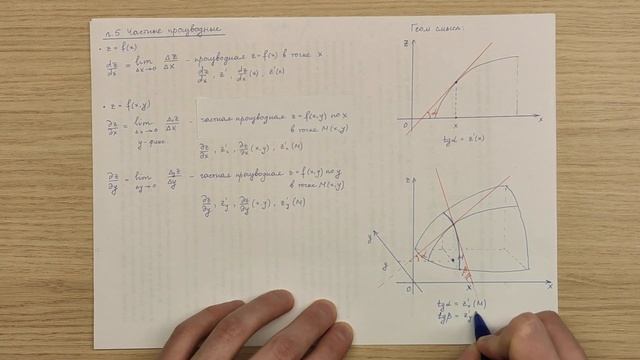 п.5 Частные производные
• z = f(x)
dz/dx = lim Δx→0 Δz/Δx - производная z = f(x) в точке x
dz/dx, z', dz/dx(x), z'(x)
• z = f(x,y)
∂z/∂x = lim Δx→0 Δₓz/Δx - частная производная z = f(x,y) по x
y - фикс. в точке M(x,y)
∂z/∂x, z'ₓ, ∂z/∂x(x,y), z'ₓ(M)
∂z/∂y = lim Δy→0 Δyz/Δy - частная производная z = f(x,y) по y
в точке M(x,y)
∂z/∂y, z'y, ∂z/∂y(x,y), z'y(M)
Геом смысл:
z
α
0 x x
tgα = z'(x)
z
y
y
α
β
0 x x
tgα = z'ₓ(M)
tgβ = z'y